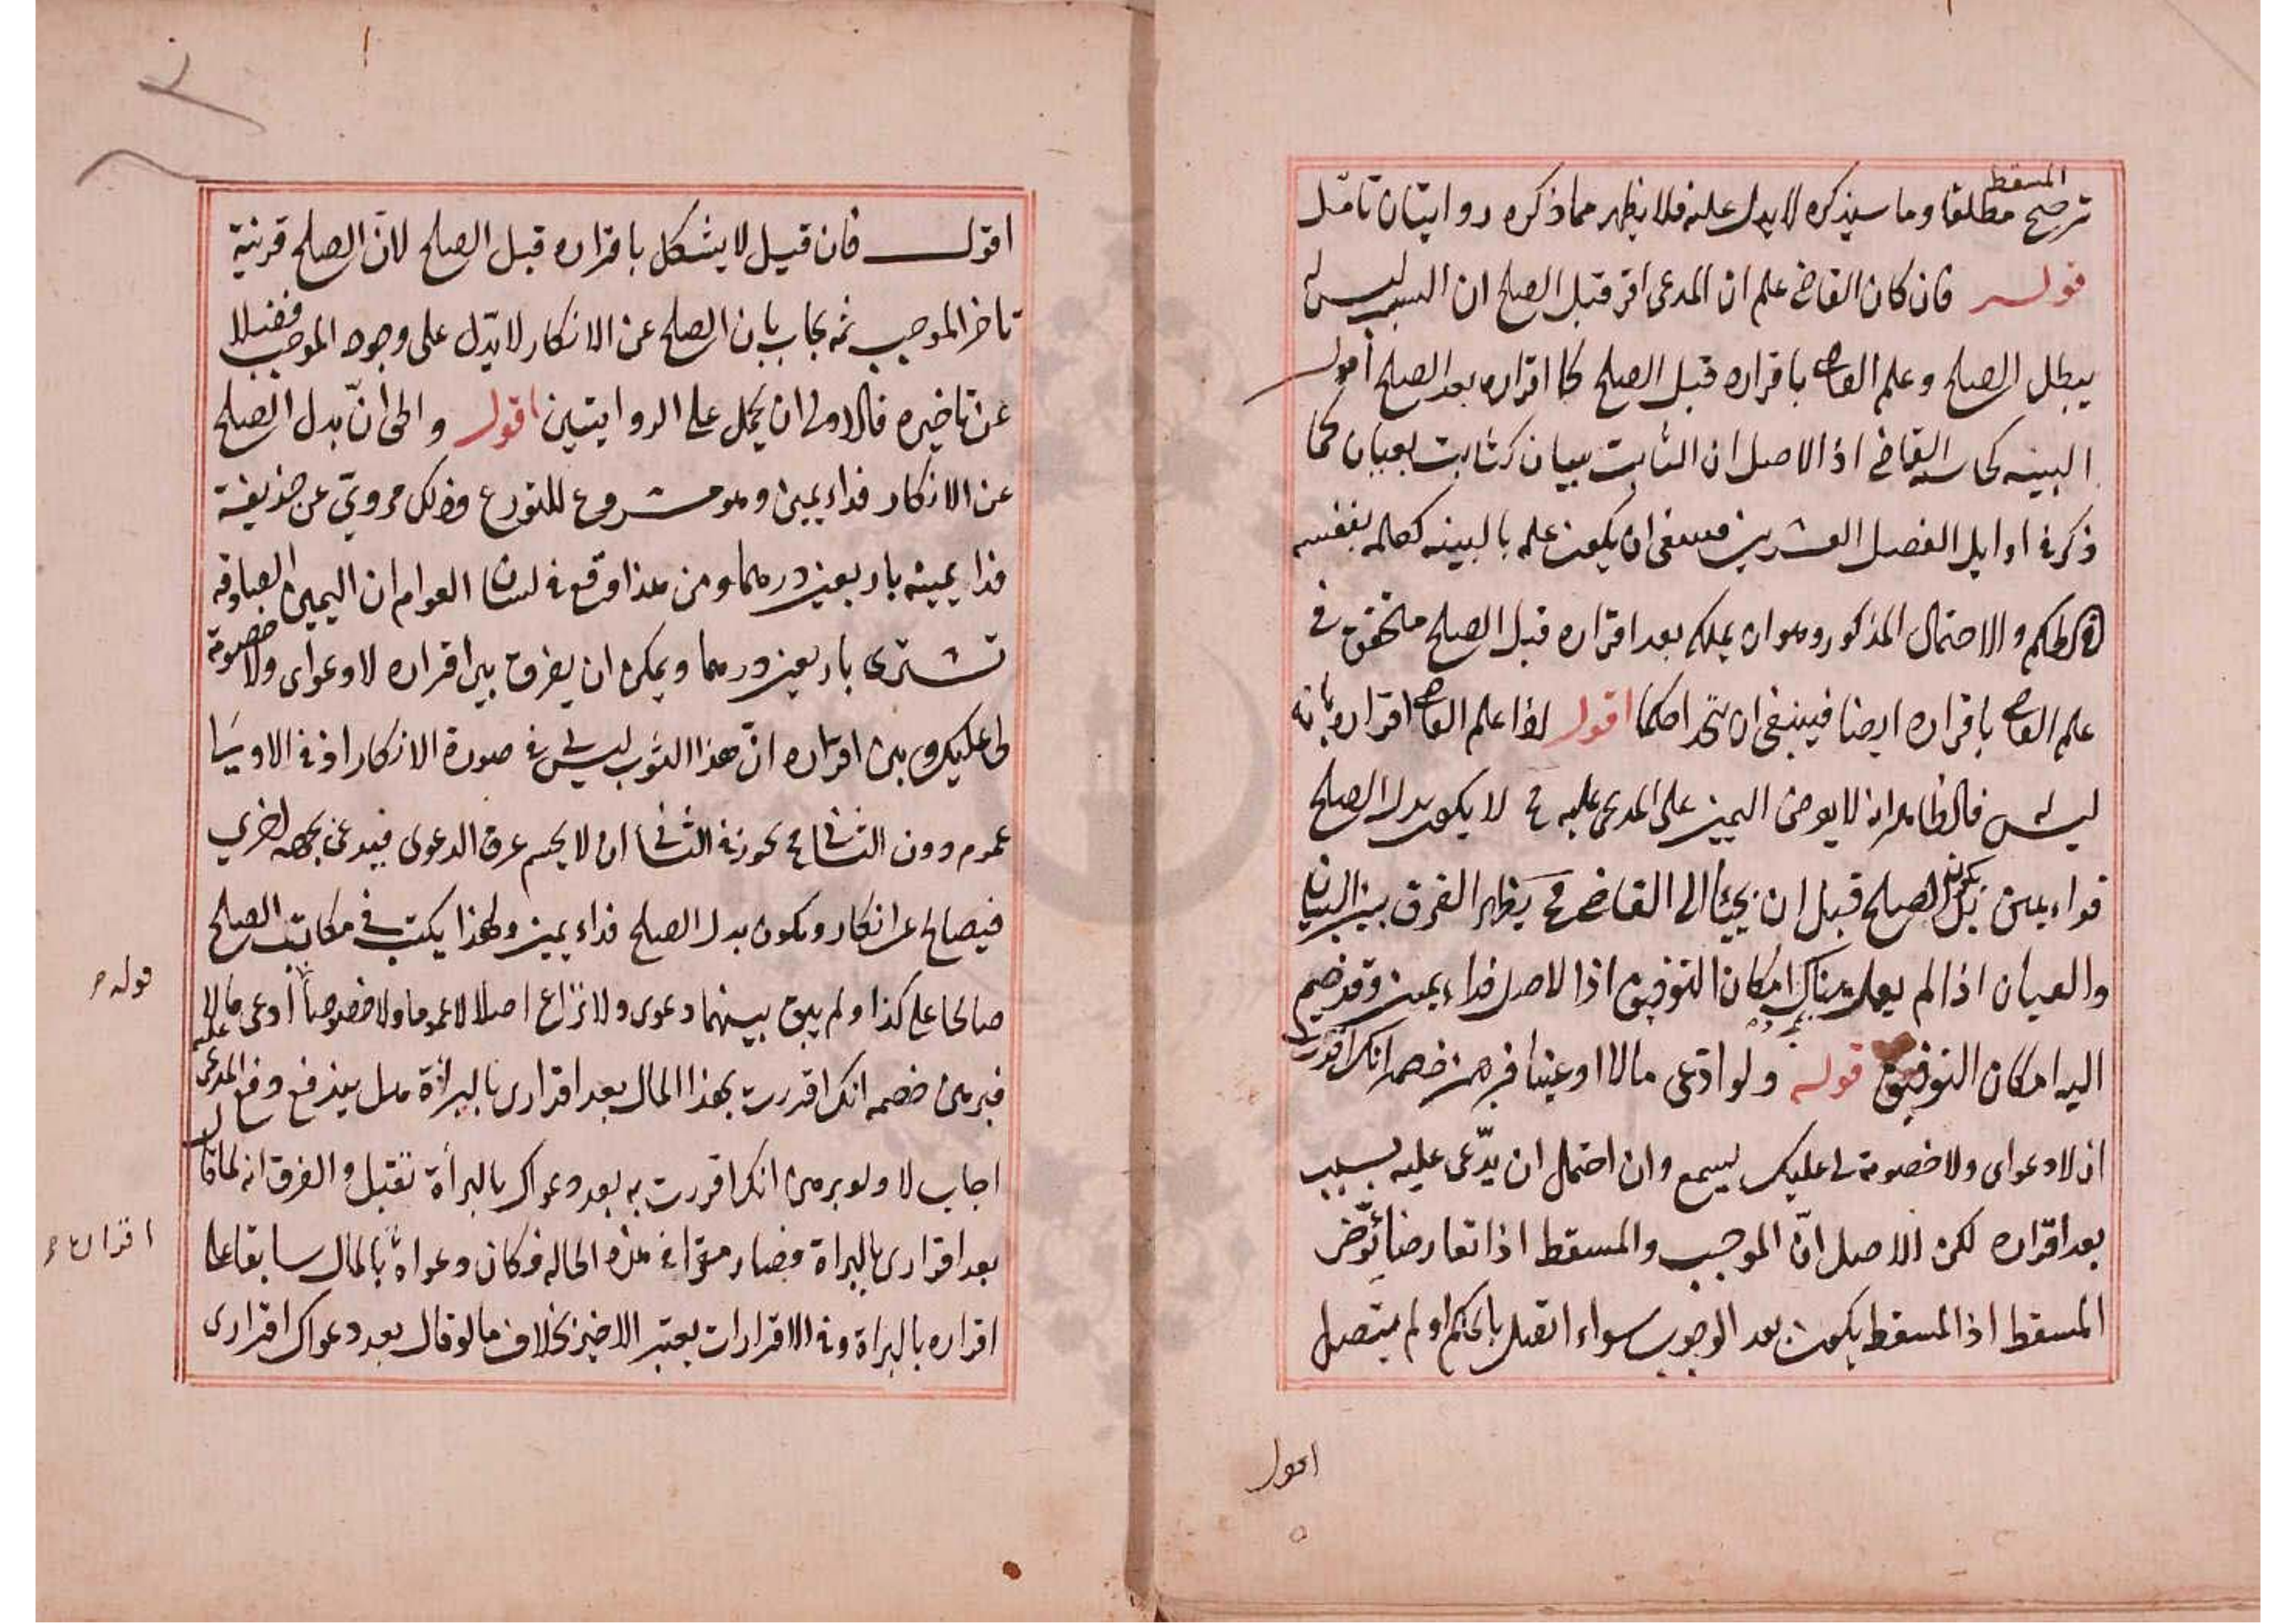 المسقط
ترجح مطلقا وما سيذكره لا يدل عليه فلا يظهر مما ذكره روايتان تأمل
قوله فان كان القاضي علم ان المدعي اقر قبل الصلح ان ليس له
يبطل الصلح وعلم القاضي باقراره قبل الصلح كاقراره بعد الصلح أقول
البينه القاضي اذ الاصل ان الثابت ببيان كثابت بعيان كما
ذكر في اوايل الفصل العشرين فينبغي ان يكون علمه بالبينه كعلمه بنفسه
في الحكم والاحتمال المذكور وهو ان يملكه بعد اقراره قبل الصلح متحقق في
علم القاضي باقراره ايضا فينبغي ان يتحد احكما اقول اذا علم القاضي اقراره بانه
ليس فالظاهر انه لا يعرض اليمين على المدعى عليه فح لا يكون بدل الصلح
فداء يمين الصلح قبل ان يجيئا الى القاضي فح يظهر الفرق بين البيان
والعيان اذا لم يعلم هناك امكان التوفيق اذا الاصل فداء يمين وقد ضم
اليه امكان التوفيق قوله ولو ادعى مالا او عينا فبرهن خصمه انك اقررت
ان لا دعوى ولا خصومة لي عليك يسمع وان احتمل ان يدّعى عليه بسبب
بعد اقراره لكن الاصل انّ الموجب والمسقط اذا تعارضا يؤخر
المسقط اذ المسقط يكون بعد الوجوب سواء اتصل بالحكم او لم يتصل
اقول
اقول فان قيل لا يشكل باقراره قبل الصلح لانّ الصلح قرينة
تاخر الموجب ثم يجاب بان الصلح عن الانكار لا يدّل على وجود الموجب فضلا
عن تاخيره فالاولى ان يحمل على الروايتين اقول والحق انّ بدل الصلح
عن الانكار فداء يمين وهو مشروع للتورع وذلك مرويّ عن حذيفة
فدا يمينه باربعين درهما ومن هذا وقع في لسان العوام ان اليمين الصادقه
تشترى باربعين درهما ويمكن ان يفرق بين اقراره لا دعوى ولا خصومة
لي عليك وبين اقراره انّ هذا الثوب ليس لي في صورة الانكار اذ في الاول
عموم دون الثاني فح يجوز في الثاني ان لا يحسم عرق الدعوى فيدعى بجهه اخري
فيصالح عن انكار ويكون بدل الصلح فداء يمين ولهذا يكتب في مكاتيب الصلح
صالحا على كذا ولم يبق بينهما دعوى ولا نزاع اصلا لا عموما ولا خصوصا ادعى مالا
قوله م
فبرهن خصمه انك اقررت بهذا المال بعد اقراري بالبرأة هل يندفع دفع المدعى عليه
اجاب لا ولو برهن انك اقررت به بعد دعواك بالبرأة تقبل والفرق انه لما قال
بعد اقراري بالبراة فصار مقرا في هذه الحاله فكان دعواه بالمال سابقا على
اقراره بالبراة وفي الاقرارات يعتبر الاخير بخلاف ما لو قال بعد دعواك اقراري